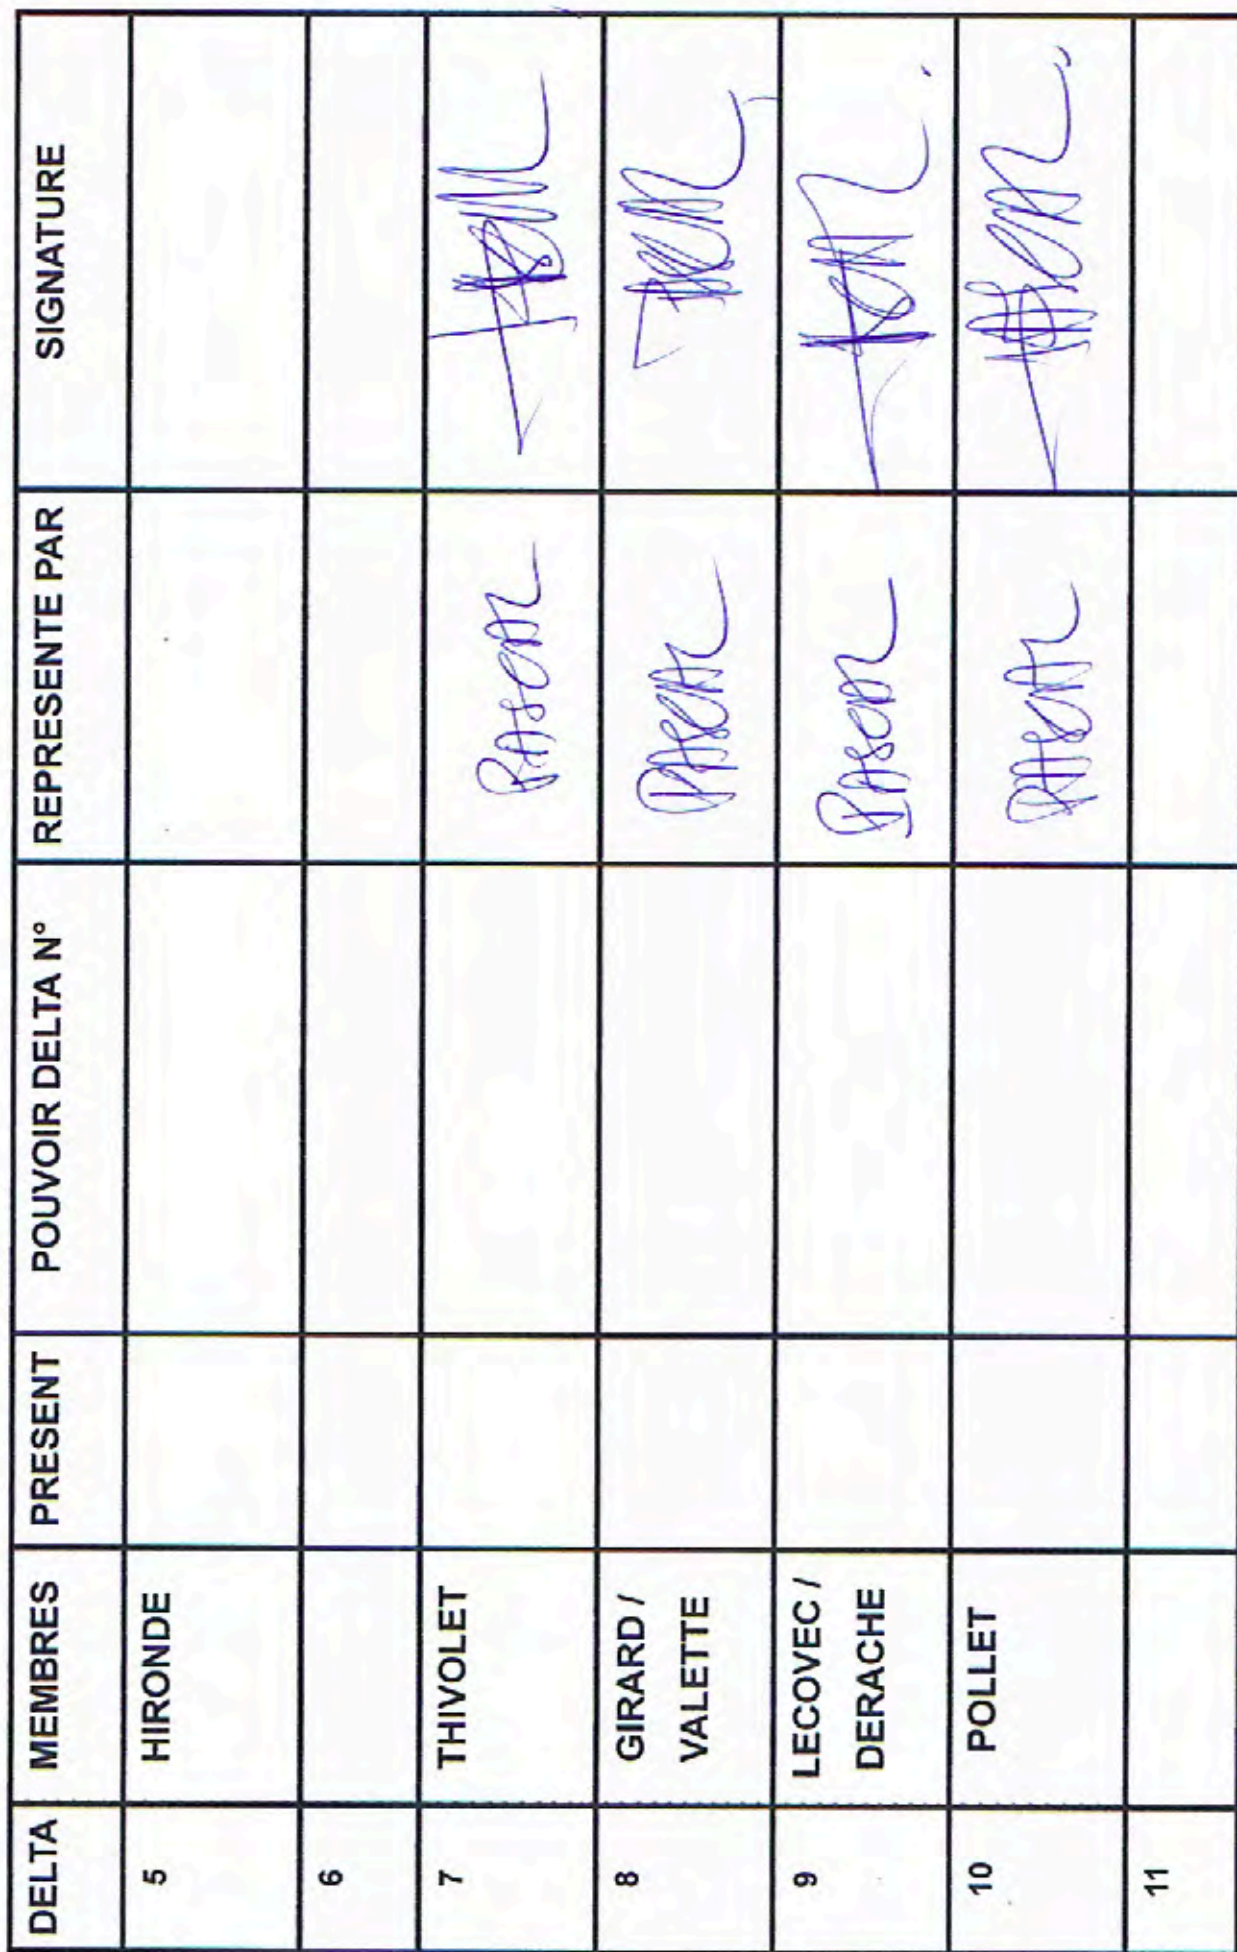 DELTA MEMBRES PRESENT POUVOIR DELTA N° REPRESENTE PAR SIGNATURE
5 HIRONDE
6
7 THIVOLET PASCAL
8 GIRARD / PASCAL
VALETTE
9 LECOVEC / PASCAL
DERACHE
10 POLLET PASCAL
11